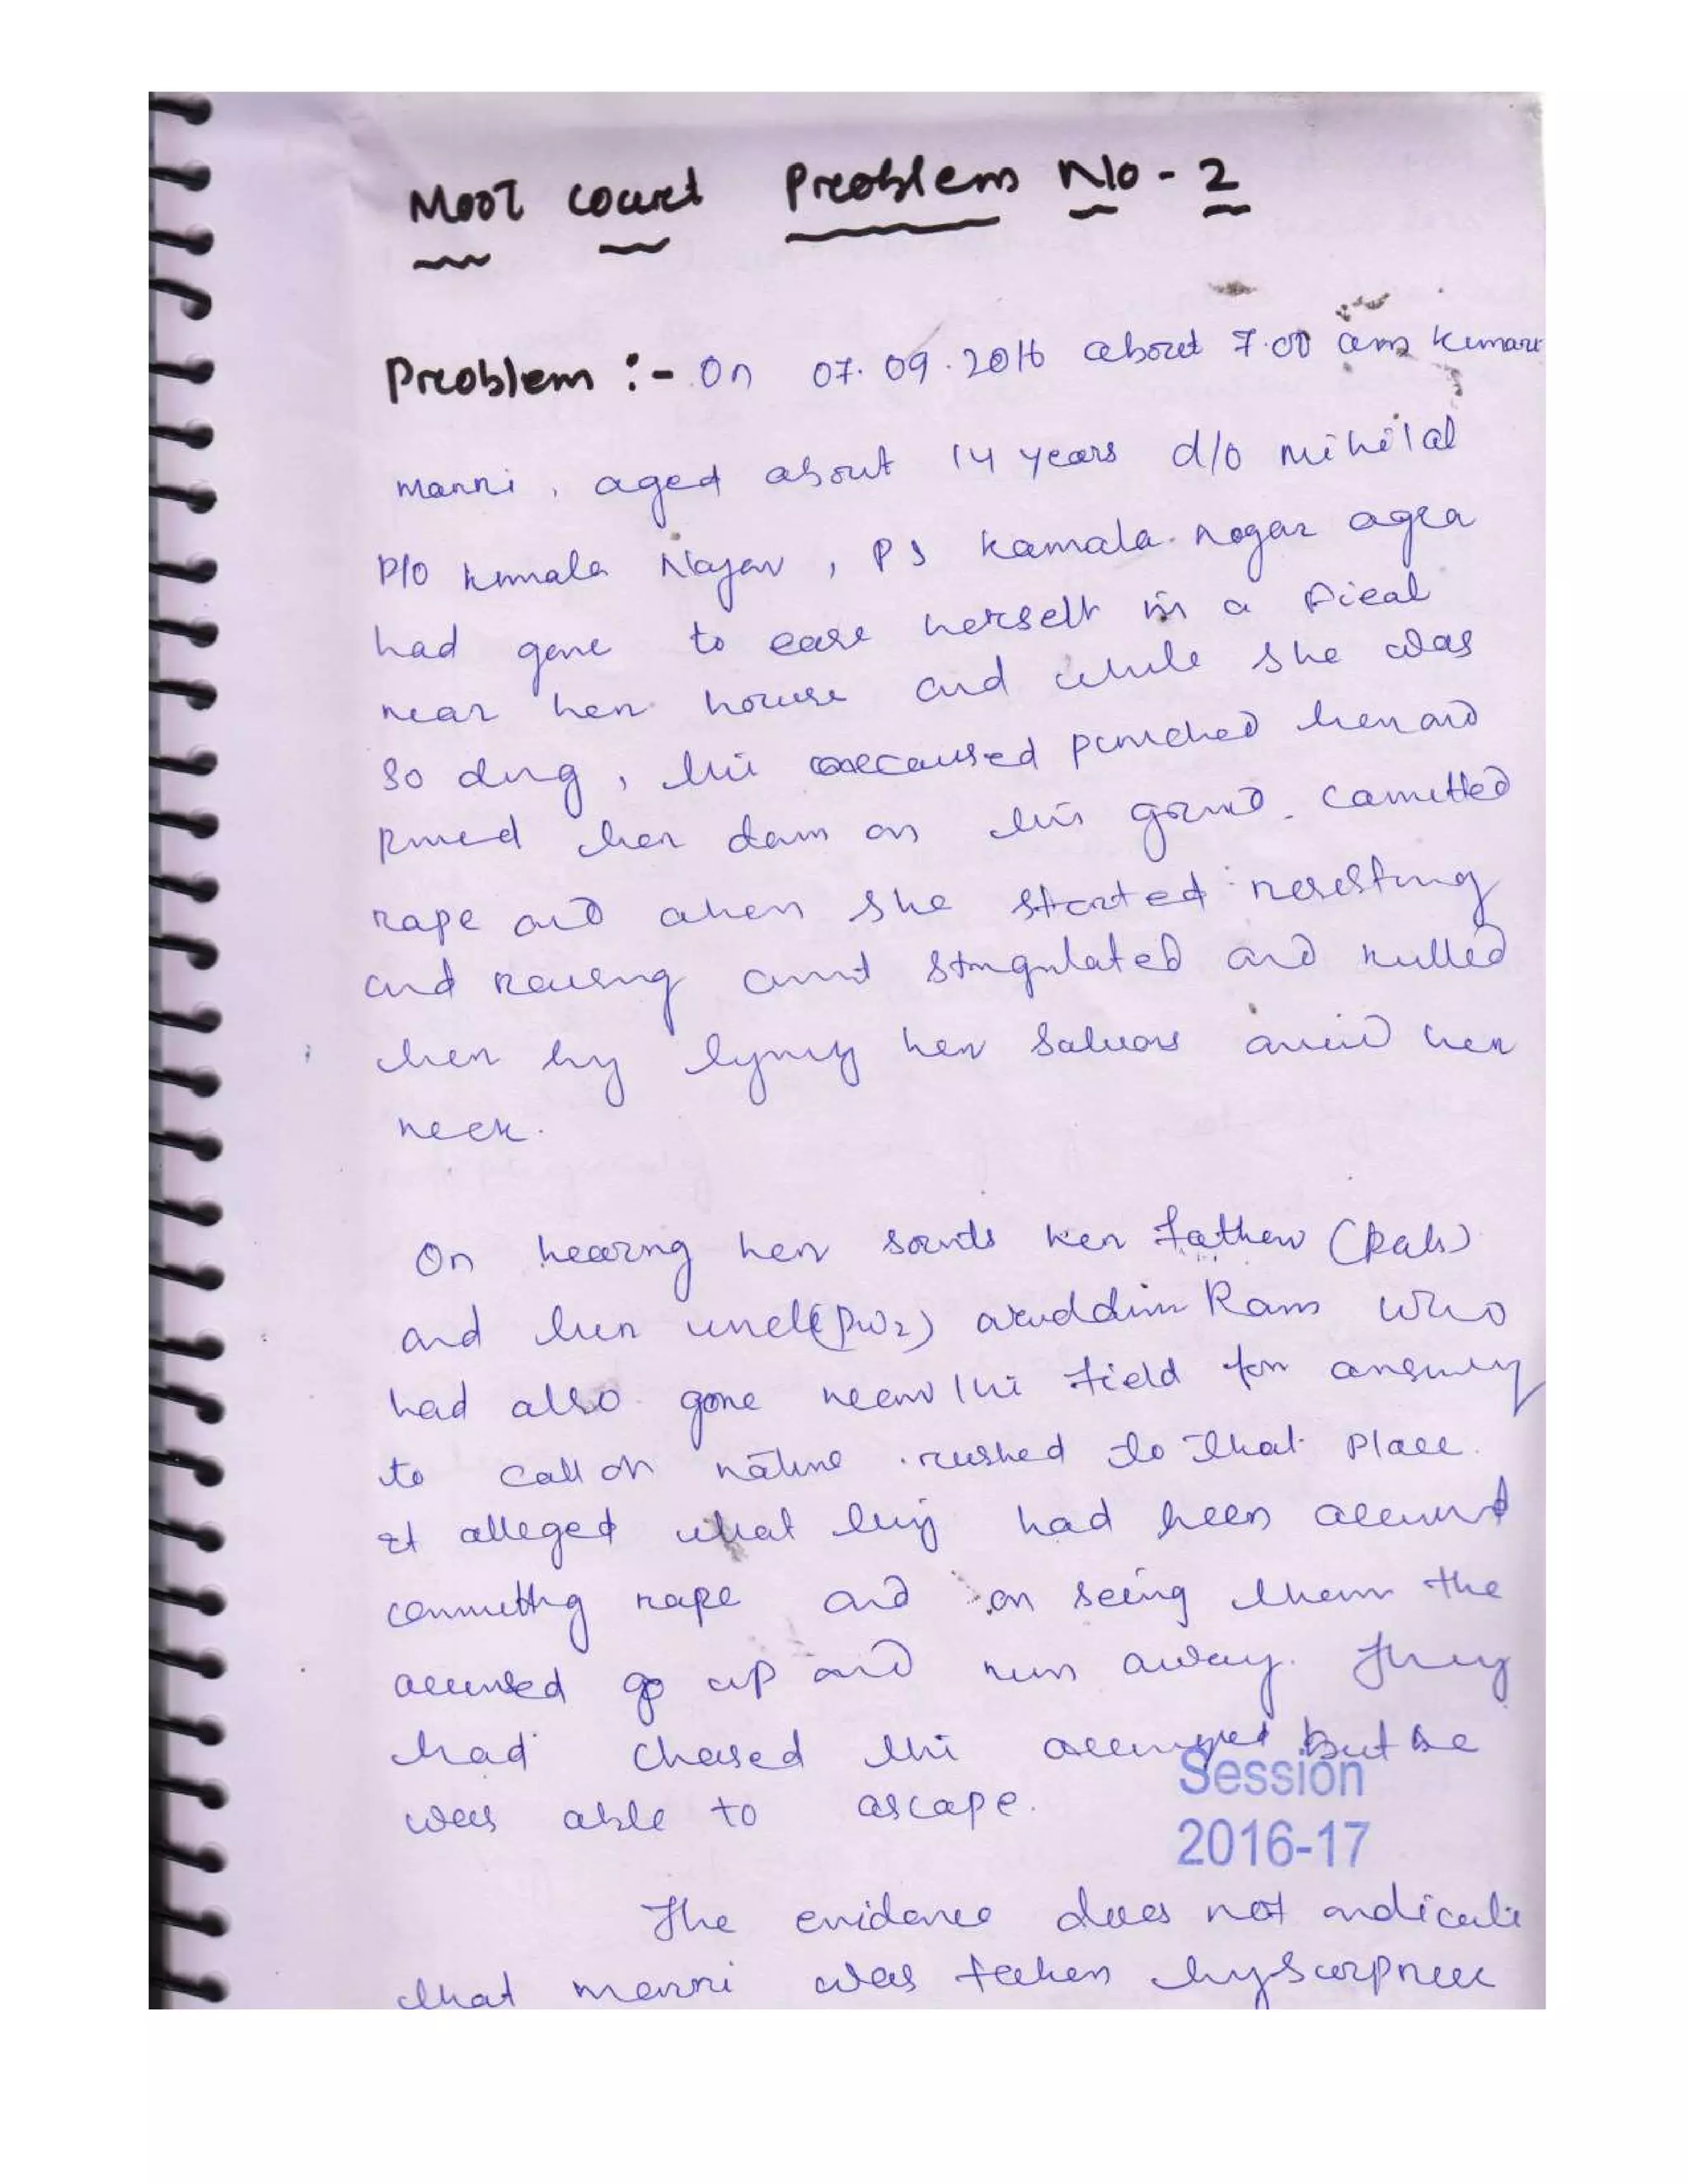 Moot court Problem No - 2
Problem :- On 07.09.2016 about 7.00 am Kumari
manni, aged about 14 years d/o
P/O kamala Nagar, PS kamala nagar agra
had gone to ease herself in a
near her house and while she was
so dng, the accaused her and
her dawn on the grond. Camitted
rape and when she started resesting
and raising and killed
her by her around her
neck.
On hearing her sounds her father
and her uncle (PW2) Ram who
had also gone near the field for
to call of nature rushed to that place.
It alleged that they had been accused
committing rape and on seeing them the
accused go up and run away. They
had chased the accused but he
was able to ascape.
Session
2016-17
The evidence does not indicate
that manni was taken by